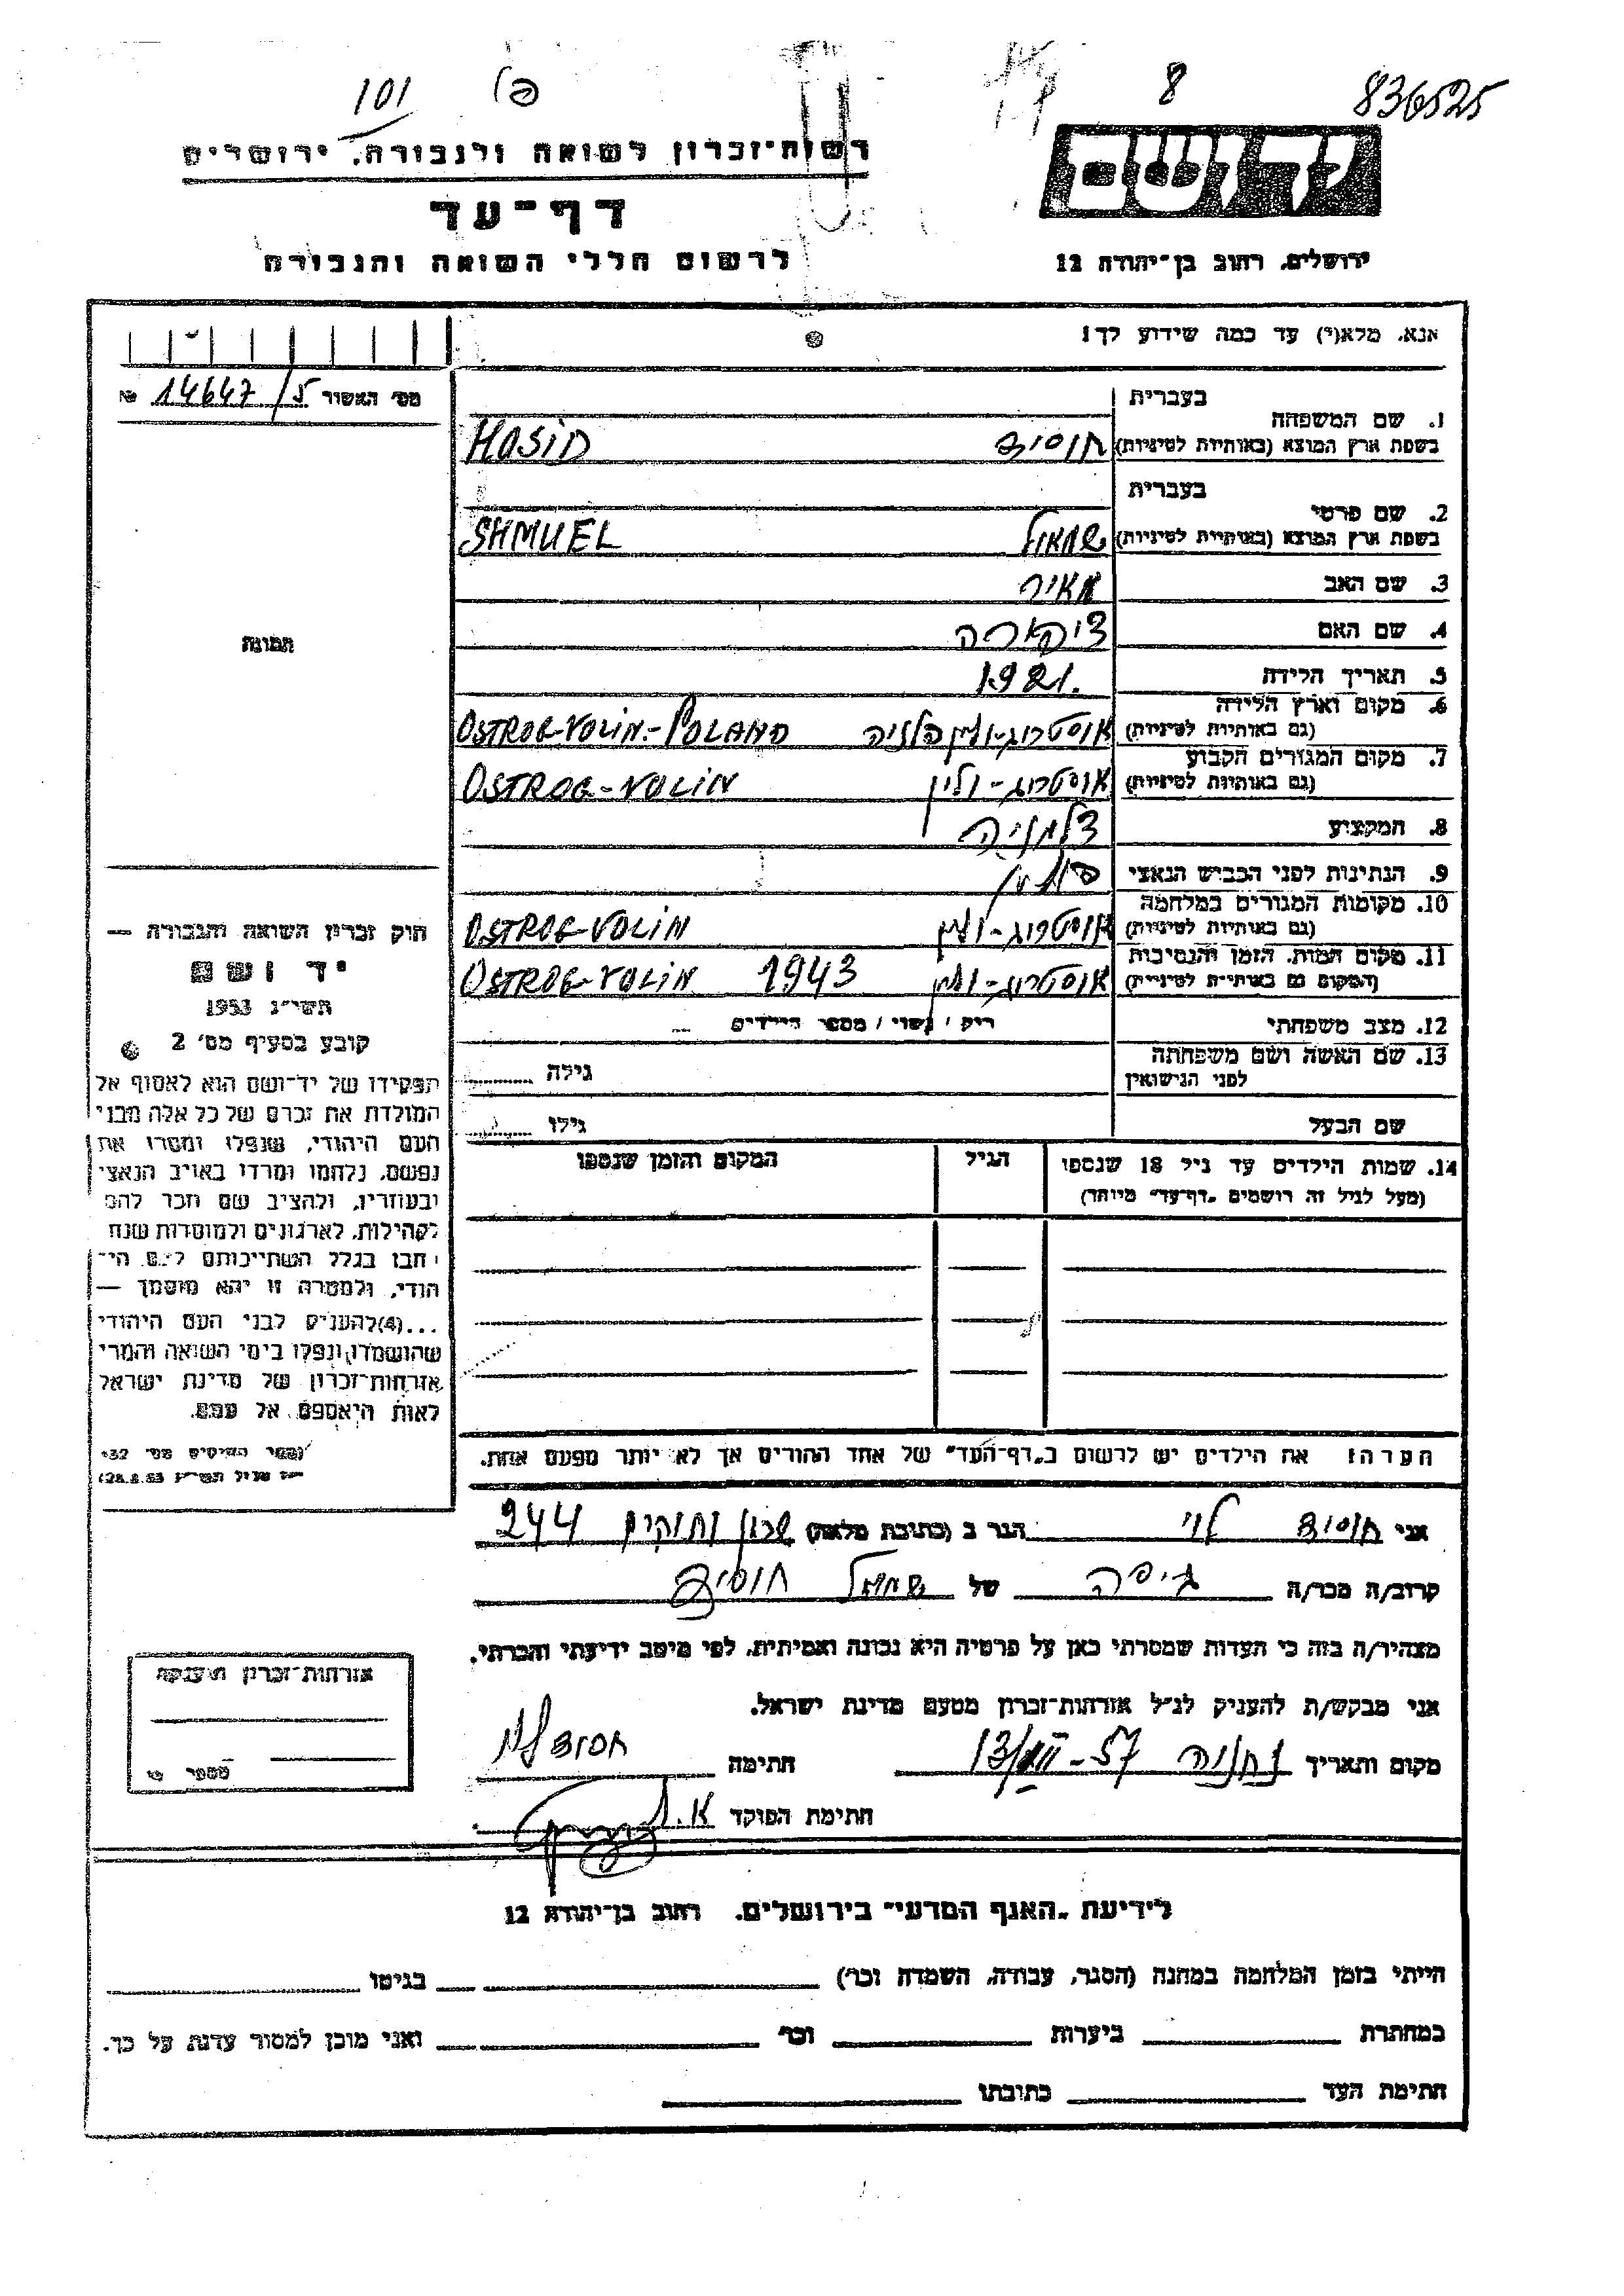 101 פו 8 836525
רשות-זכרון לשואה ולגבורה, ירושלים
יד ושם
דף-עד
לרשום חללי השואה והגבורה
ירושלים, רחוב בן-יהודה 12
אנא, מלא(י) עד כמה שידוע לך!
מס' האשור 14647/5 №
1. שם המשפחה
בעברית
בשפת ארץ המוצא (באותיות לטיניות) חוסיד HOSID
2. שם פרטי
בעברית
בשפת ארץ המוצא (באותיות לטיניות) שמואל SHMUEL
3. שם האב מאיר
4. שם האם
5. תאריך הלידה 1921.
6. מקום וארץ הלידה
(גם באותיות לטיניות) אוסטרוג-ולין פולניה OSTROG-VOLIN-POLAND
7. מקום המגורים הקבוע
(גם באותיות לטיניות) אוסטרוג-ולין OSTROG-VOLIN
8. המקצוע
9. הנתינות לפני הכביש הנאצי
10. מקומות המגורים במלחמה
(גם באותיות לטיניות) אוסטרוג-ולין OSTROG-VOLIN
11. מקום המות, הזמן והנסיבות
(המקום גם באותיות לטיניות) אוסטרוג-ולין 1943 OSTROG-VOLIN
12. מצב משפחתי רוק / נשוי / מספר הילדים
13. שם האשה ושם משפחתה
לפני הנישואין גילה
שם הבעל גילו
14. שמות הילדים עד גיל 18 שנספו הגיל המקום והזמן שנספו
(מעל לגיל זה רושמים "דף-עד" מיוחד)
הערה: את הילדים יש לרשום ב"דף-העד" של אחד ההורים אך לא יותר מפעם אחת.
תמונה
חוק זכרון השואה והגבורה —
יד ושם
תשי"ג 1953
קובע בסעיף מס' 2
תפקידו של יד-ושם הוא לאסוף אל
המולדת את זכרם של כל אלה מבני
העם היהודי, שנפלו ומסרו את
נפשם, נלחמו ומרדו באויב הנאצי
ובעוזריו, ולהציב שם וזכר להם
לקהילות, לארגונים ולמוסדות שנח
חבו בגלל השתייכותם לעם הי-
הודי, ולמטרה זו יהא מוסמך —
...(4) להעניק לבני העם היהודי
שהושמדו ונפלו בימי השואה והמרי
אזרחות-זכרון של מדינת ישראל
לאות היאספם אל עמם.
אני חוסיד לוי הגר ב (כתובת מלאה) שכון ותיקים 244
קרוב/ה מכר/ה גיסה של שמואל חוסיד
מצהיר/ה בזה כי העדות שמסרתי כאן על פרטיה היא נכונה ואמיתית, לפי מיטב ידיעתי והכרתי.
אני מבקש/ת להעניק לנ"ל אזרחות-זכרון מטעם מדינת ישראל.
מקום ותאריך נתניה 13/VII-57 חתימה
חתימת הפוקד
אזרחות-זכרון הוענקה
מספר
לידיעת "האגף המדעי" בירושלים, רחוב בן-יהודה 12
הייתי בזמן המלחמה במחנה (הסגר, עבודה, השמדה וכו') בגיטו
במחתרת ביערות וכו' ואני מוכן למסור עדות על כך.
חתימת העד כתובתו